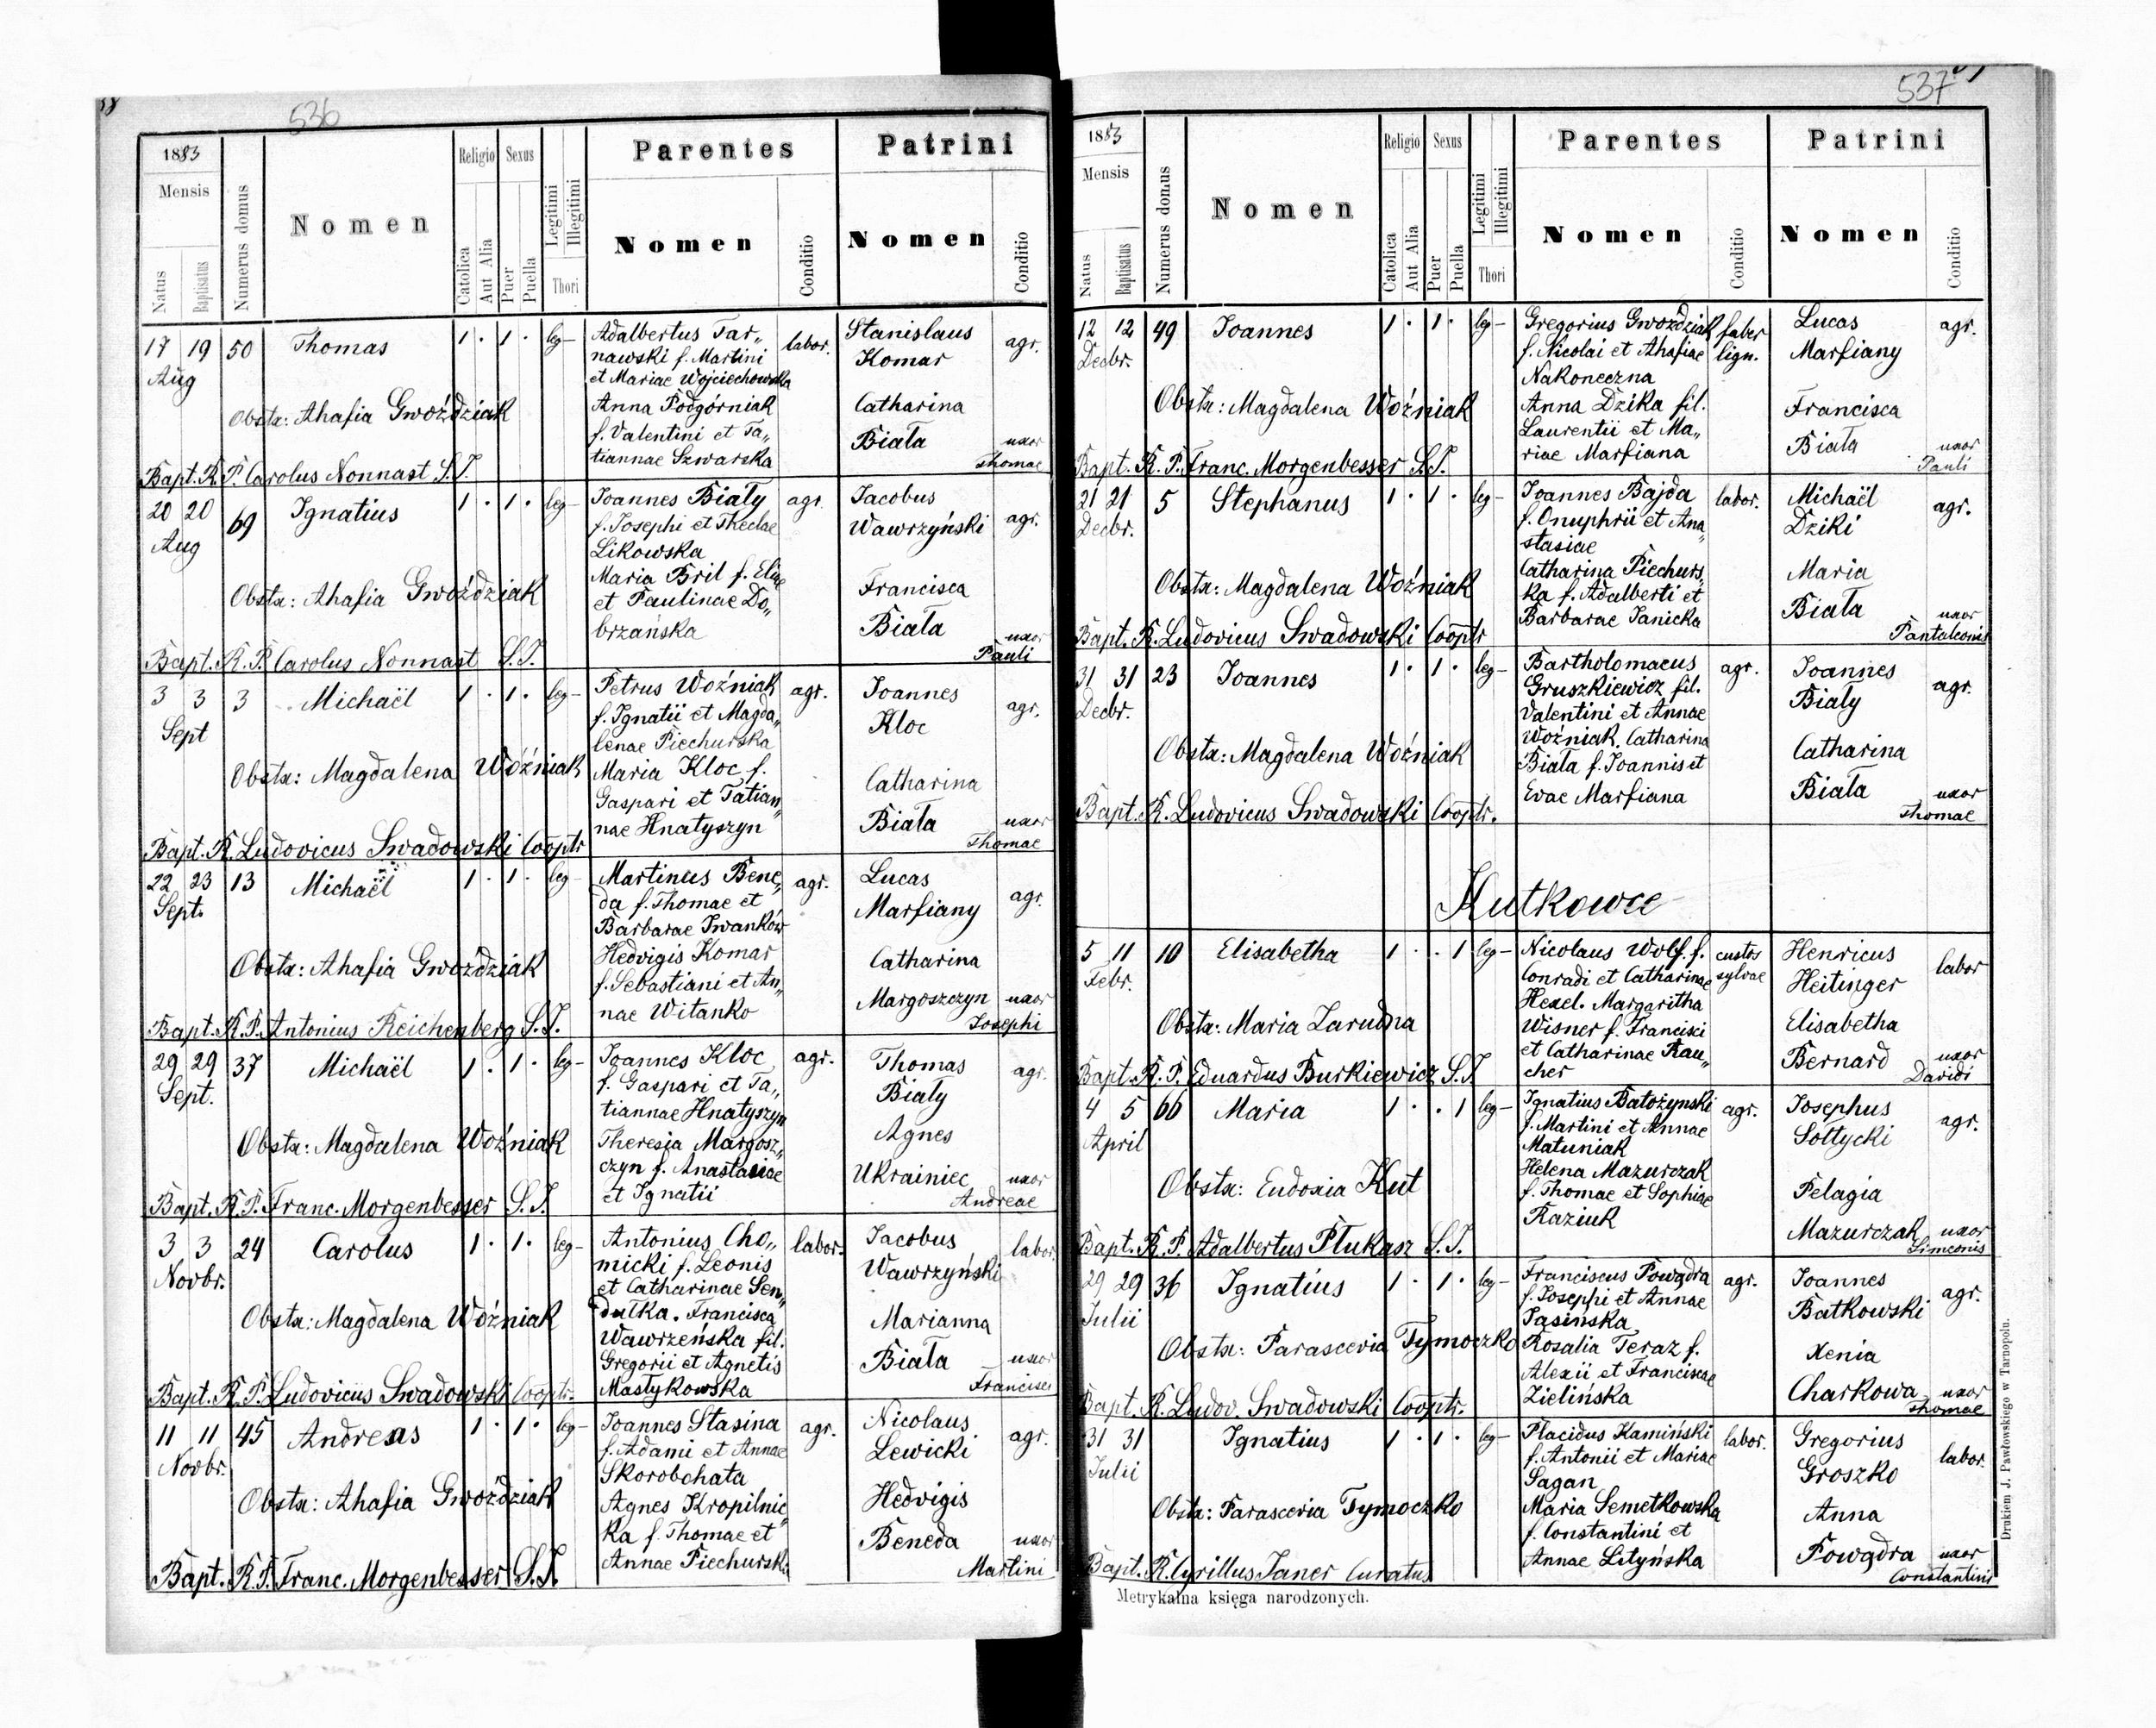 536
1883
Mensis
Natus
Baptisatus
Numerus domus
Nomen
Religio
Catolica
Aut Alia
Sexus
Puer
Puella
Legitimi
Illegitimi
Thori
Parentes
Nomen
Conditio
Patrini
Nomen
Conditio
17 19 50 Thomas 1 · 1 · leg-
Aug
Adalbertus Tar„
nawski f. Martini
et Mariae Wojciechowska
Anna Podgórniak
f. Valentini et Ta„
tiannae Szwarska
labor.
Stanislaus
Komar
agr.
Catharina
Biała
uxor
Thomae
Obstx: Ahafia Gwoździak
Bapt. R. P. Carolus Nonnast S.J.
20 20 69 Ignatius 1 · 1 · leg-
Aug
Joannes Biały
f. Josephi et Theclae
Likowska
Maria Bril f. Eliae
et Paulinae Do„
brzańska
agr.
Jacobus
Wawrzyński
agr.
Francisca
Biała
uxor
Pauli
Obstx: Ahafia Gwoździak
Bapt. R. P. Carolus Nonnast S.J.
3 3 3 Michaël 1 · 1 · leg-
Sept
Petrus Woźniak
f. Ignatii et Magda„
lenae Piechurska
Maria Kloc f.
Gaspari et Tatian„
nae Hnatyszyn
agr.
Joannes
Kloc
agr.
Catharina
Biała
uxor
Thomae
Obstx: Magdalena Woźniak
Bapt. R. Ludovicus Swadowski Cooptr
22 23 13 Michaël 1 · 1 · leg-
Sept.
Martinus Bene„
da f. Thomae et
Barbarae Iwanków
Hedvigis Komar
f. Sebastiani et An„
nae Witanko
agr.
Lucas
Marfiany
agr.
Catharina
Margoszczyn
uxor
Josephi
Obstx: Ahafia Gwoździak
Bapt. R. P. Antonius Reichenberg S.J.
29 29 37 Michaël 1 · 1 · leg-
Sept.
Joannes Kloc
f. Gaspari et Ta„
tiannae Hnatyszyn
Theresia Margosz„
czyn f. Anastasiae
et Ignatii
agr.
Thomas
Biały
agr.
Agnes
Ukrainiec
uxor
Andreae
Obstx: Magdalena Woźniak
Bapt. R. P. Franc. Morgenbesser S.J.
3 3 24 Carolus 1 · 1 · leg-
Novbr.
Antonius Cho„
micki f. Leonis
et Catharinae Sen„
dułka. Francisca
Wawrzeńska fil.
Gregorii et Agnetis
Mastykowska
labor.
Jacobus
Wawrzyński
labor.
Marianna
Biała
uxor
Francisci
Obstx: Magdalena Woźniak
Bapt. R. P. Ludovicus Swadowski Cooptr.
11 11 45 Andreas 1 · 1 · leg-
Novbr.
Joannes Stasina
f. Adami et Annae
Skorobohata
Agnes Kropilnic„
ka f. Thomae et
Annae Piechurska
agr.
Nicolaus
Lewicki
agr.
Hedvigis
Beneda
uxor
Martini
Obstx: Ahafia Gwoździak
Bapt. R. P. Franc. Morgenbesser S.J.
537
1883
Mensis
Natus
Baptisatus
Numerus domus
Nomen
Religio
Catolica
Aut Alia
Sexus
Puer
Puella
Legitimi
Illegitimi
Thori
Parentes
Nomen
Conditio
Patrini
Nomen
Conditio
12 12 49 Joannes 1 · 1 · leg-
Decbr.
Gregorius Gwoździak
f. Nicolai et Ahafiae
Nakoneczna
Anna Dzika fil.
Laurentii et Ma„
riae Marfiana
faber
lign.
Lucas
Marfiany
agr.
Francisca
Biała
uxor
Pauli
Obstx: Magdalena Woźniak
Bapt. R. P. Franc. Morgenbesser S.J.
21 21 5 Stephanus 1 · 1 · leg-
Decbr.
Joannes Bajda
f. Onuphrii et Ana„
stasiae
Catharina Piechurs„
ka f. Adalberti et
Barbarae Janicka
labor.
Michaël
Dziki
agr.
Maria
Biała
uxor
Pantaleonis
Obstx: Magdalena Woźniak
Bapt. R. Ludovicus Swadowski Cooptr
31 31 23 Joannes 1 · 1 · leg-
Decbr.
Bartholomaeus
Gruszkiewicz fil.
Valentini et Annae
Woźniak. Catharina
Biała f. Joannis et
Evae Marfiana
agr.
Joannes
Biały
agr.
Catharina
Biała
uxor
Thomae
Obstx: Magdalena Woźniak
Bapt. R. Ludovicus Swadowski Cooptr.
Kutkowce
5 11 10 Elisabetha 1 · · 1 leg-
Febr.
Nicolaus Wolf f.
Conradi et Catharinae
Hexel. Margaritha
Wisner f. Francisci
et Catharinae Rau„
cher
custos
sylvae
Henricus
Heitinger
labor
Elisabetha
Bernard
uxor
Davidi
Obstx: Maria Zarudna
Bapt. R. P. Eduardus Burkiewicz S.J.
4 5 66 Maria 1 · · 1 leg-
April
Ignatius Batożynski
f. Martini et Annae
Matuniak
Helena Mazurczak
f. Thomae et Sophiae
Raziuk
agr.
Josephus
Sołtycki
agr.
Pelagia
Mazurczak
uxor
Simeonis
Obstx: Eudoxia Kut
Bapt. R. P. Adalbertus Płukasz S.J.
29 29 36 Ignatius 1 · 1 · leg-
Julii
Franciscus Powądra
f. Josephi et Annae
Jasińska
Rosalia Teraz f.
Alexii et Franciscae
Zielińska
agr.
Joannes
Batkowski
agr.
Xenia
Charkowa
uxor
Thomae
Obstx: Parascevia Tymoczko
Bapt. R. Ludov. Swadowski Cooptr.
31 31 Ignatius 1 · 1 · leg-
Julii
Placidus Kamiński
f. Antonii et Mariae
Sagan
Maria Semetkowska
f. Constantini et
Annae Letyńska
labor.
Gregorius
Groszko
labor.
Anna
Powądra
uxor
Constantinis
Obstx: Parascevia Tymoczko
Bapt. R. Cyrillus Janer Curatus
Metrykalna księga narodzonych.
Drukiem J. Pawłowskiego w Tarnopolu.